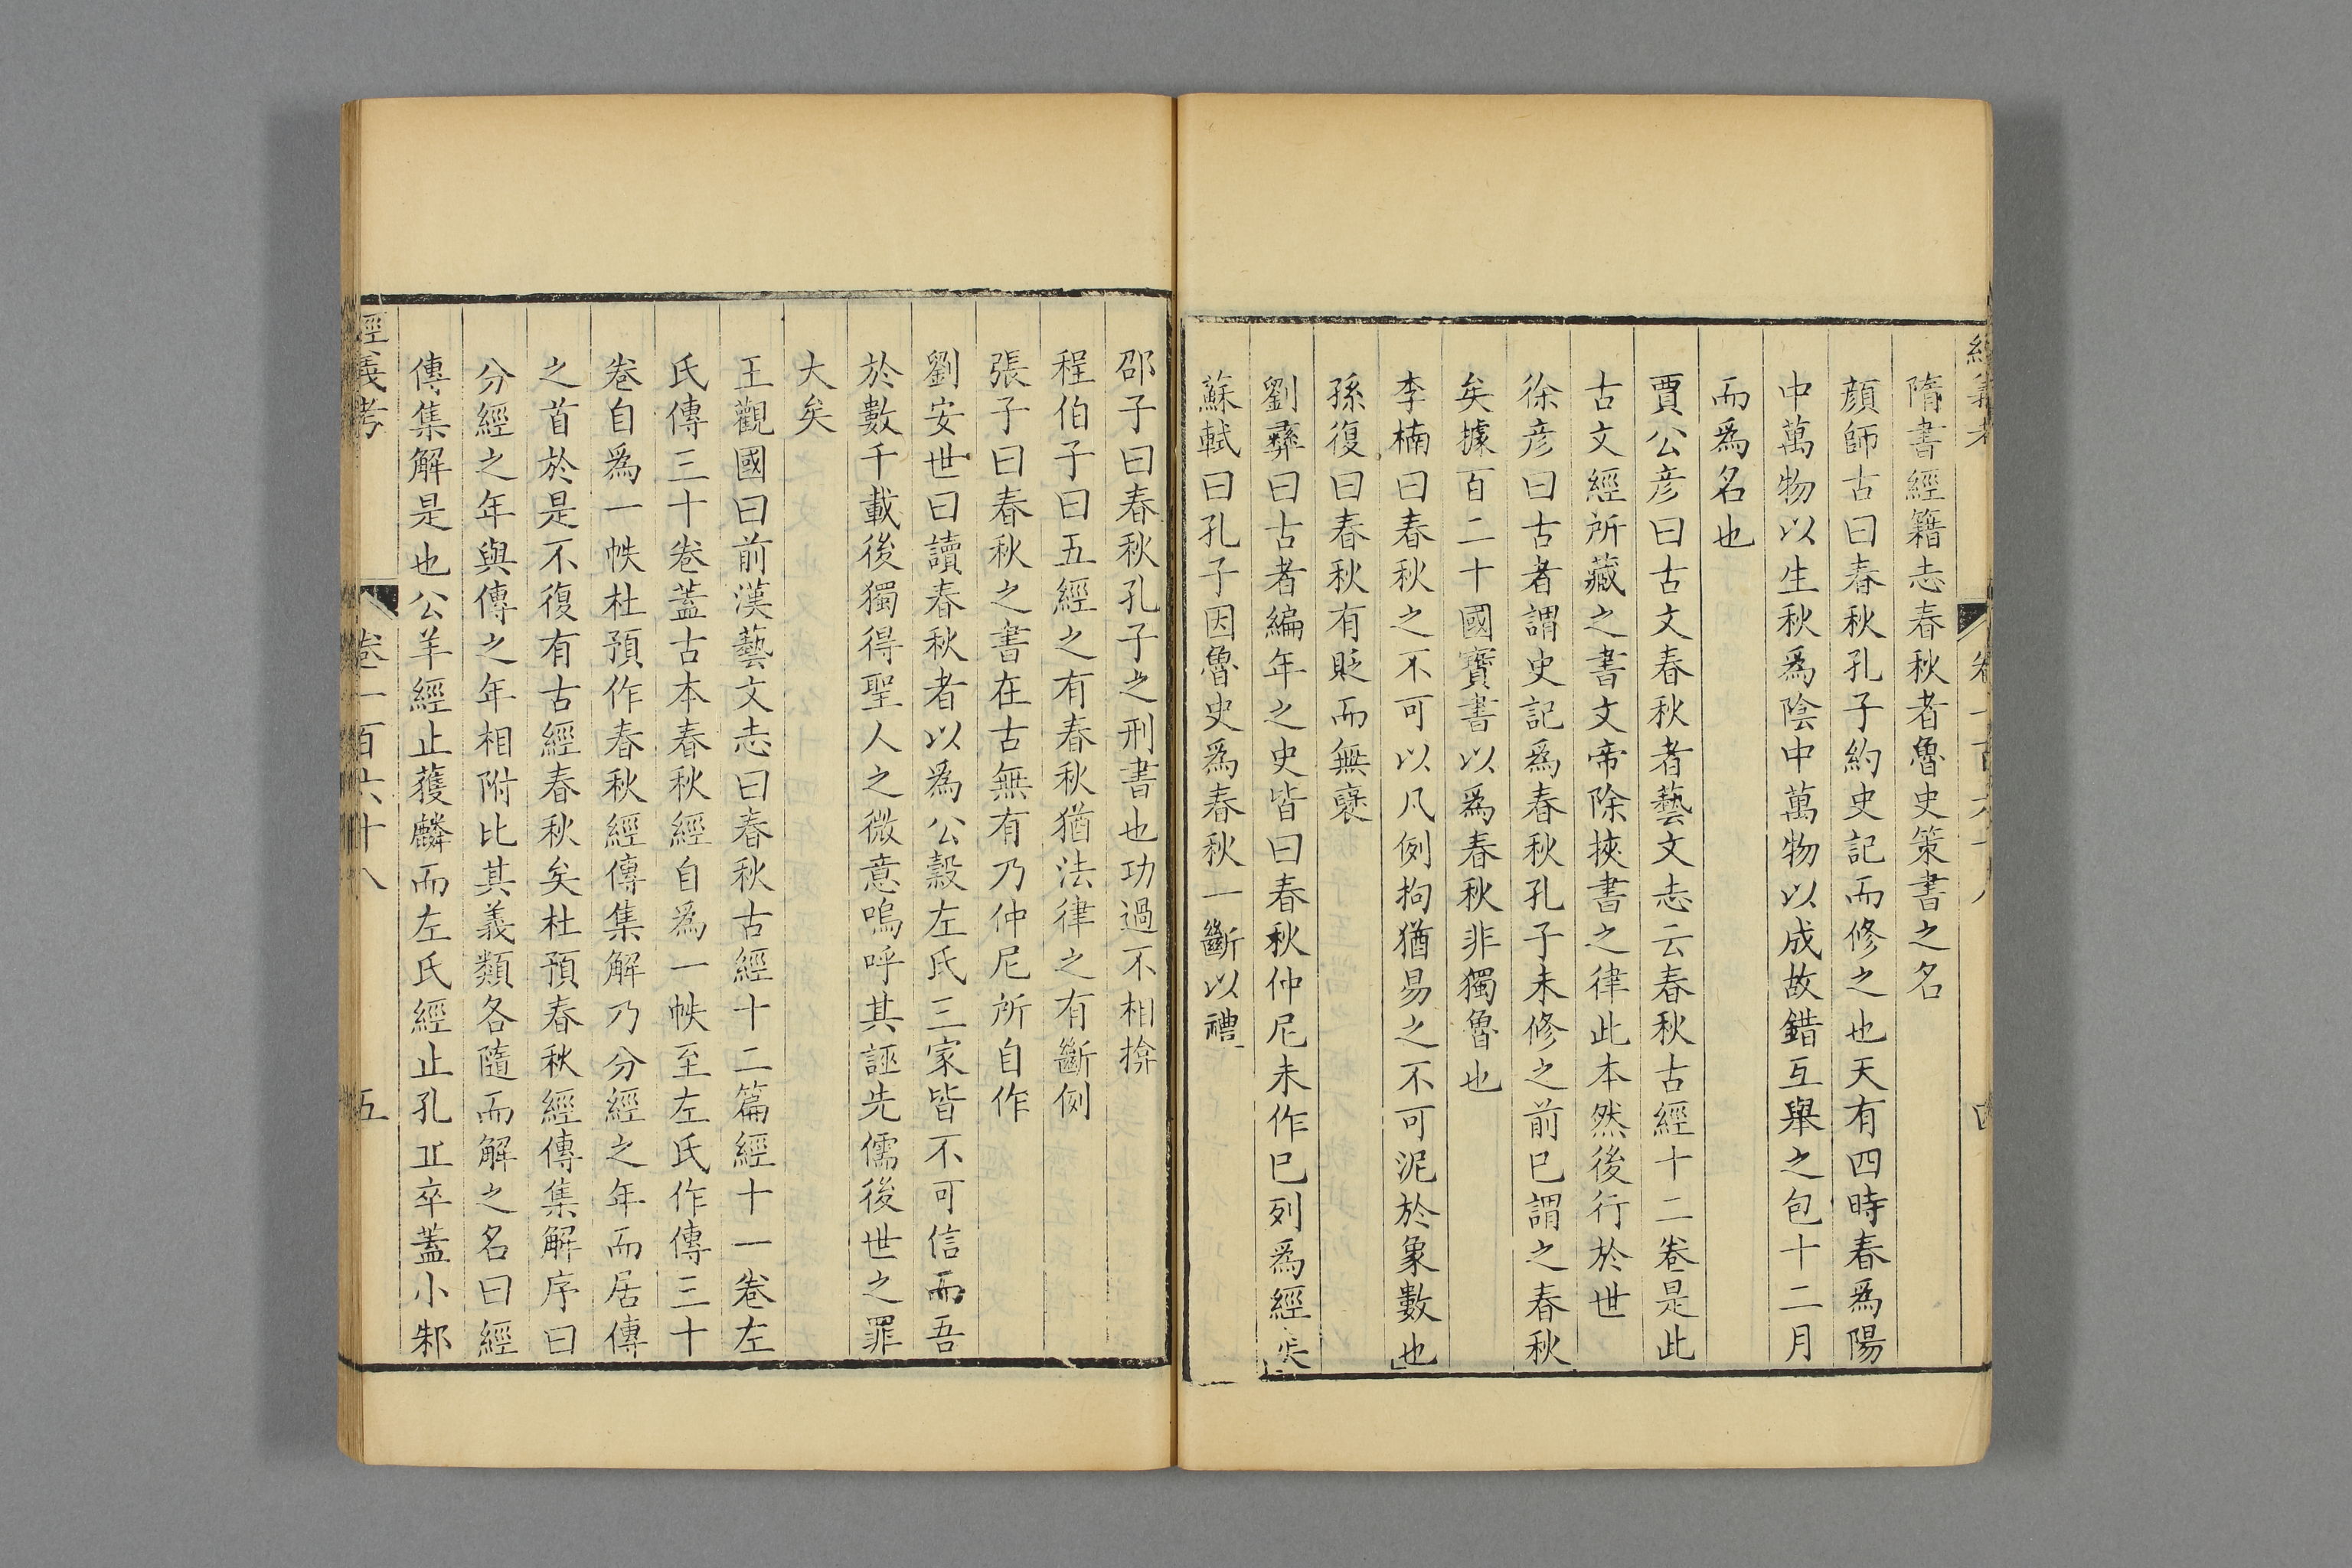 經義考 卷一百六十八 四
隋書經籍志春秋者魯史策書之名
顏師古曰春秋孔子約史記而修之也天有四時春爲陽
中萬物以生秋爲陰中萬物以成故錯互舉之包十二月
而爲名也
賈公彥曰古文春秋者藝文志云春秋古經十二卷是此
古文經所藏之書文帝除挾書之律此本然後行於世
徐彥曰古者謂史記爲春秋孔子未修之前已謂之春秋
矣據百二十國寶書以爲春秋非獨魯也
李楠曰春秋之不可以凡例拘猶易之不可泥於象數也
孫復曰春秋有貶而無襃
劉彝曰古者編年之史皆曰春秋仲尼未作已列爲經矣
蘇軾曰孔子因魯史爲春秋一斷以禮
邵子曰春秋孔子之刑書也功過不相揜
程伯子曰五經之有春秋猶法律之有斷例
張子曰春秋之書在古無有乃仲尼所自作
劉安世曰讀春秋者以爲公穀左氏三家皆不可信而吾
於數千載後獨得聖人之微意嗚呼其誣先儒後世之罪
大矣
王觀國曰前漢藝文志曰春秋古經十二篇經十一卷左
氏傳三十卷蓋古本春秋經自爲一帙至左氏作傳三十
卷自爲一帙杜預作春秋經傳集解乃分經之年而居傳
之首於是不復有古經春秋矣杜預春秋經傳集解序曰
分經之年與傳之年相附比其義類各隨而解之名曰經
傳集解是也公羊經止獲麟而左氏經止孔丘卒蓋小邾
經義考 卷一百六十八 五